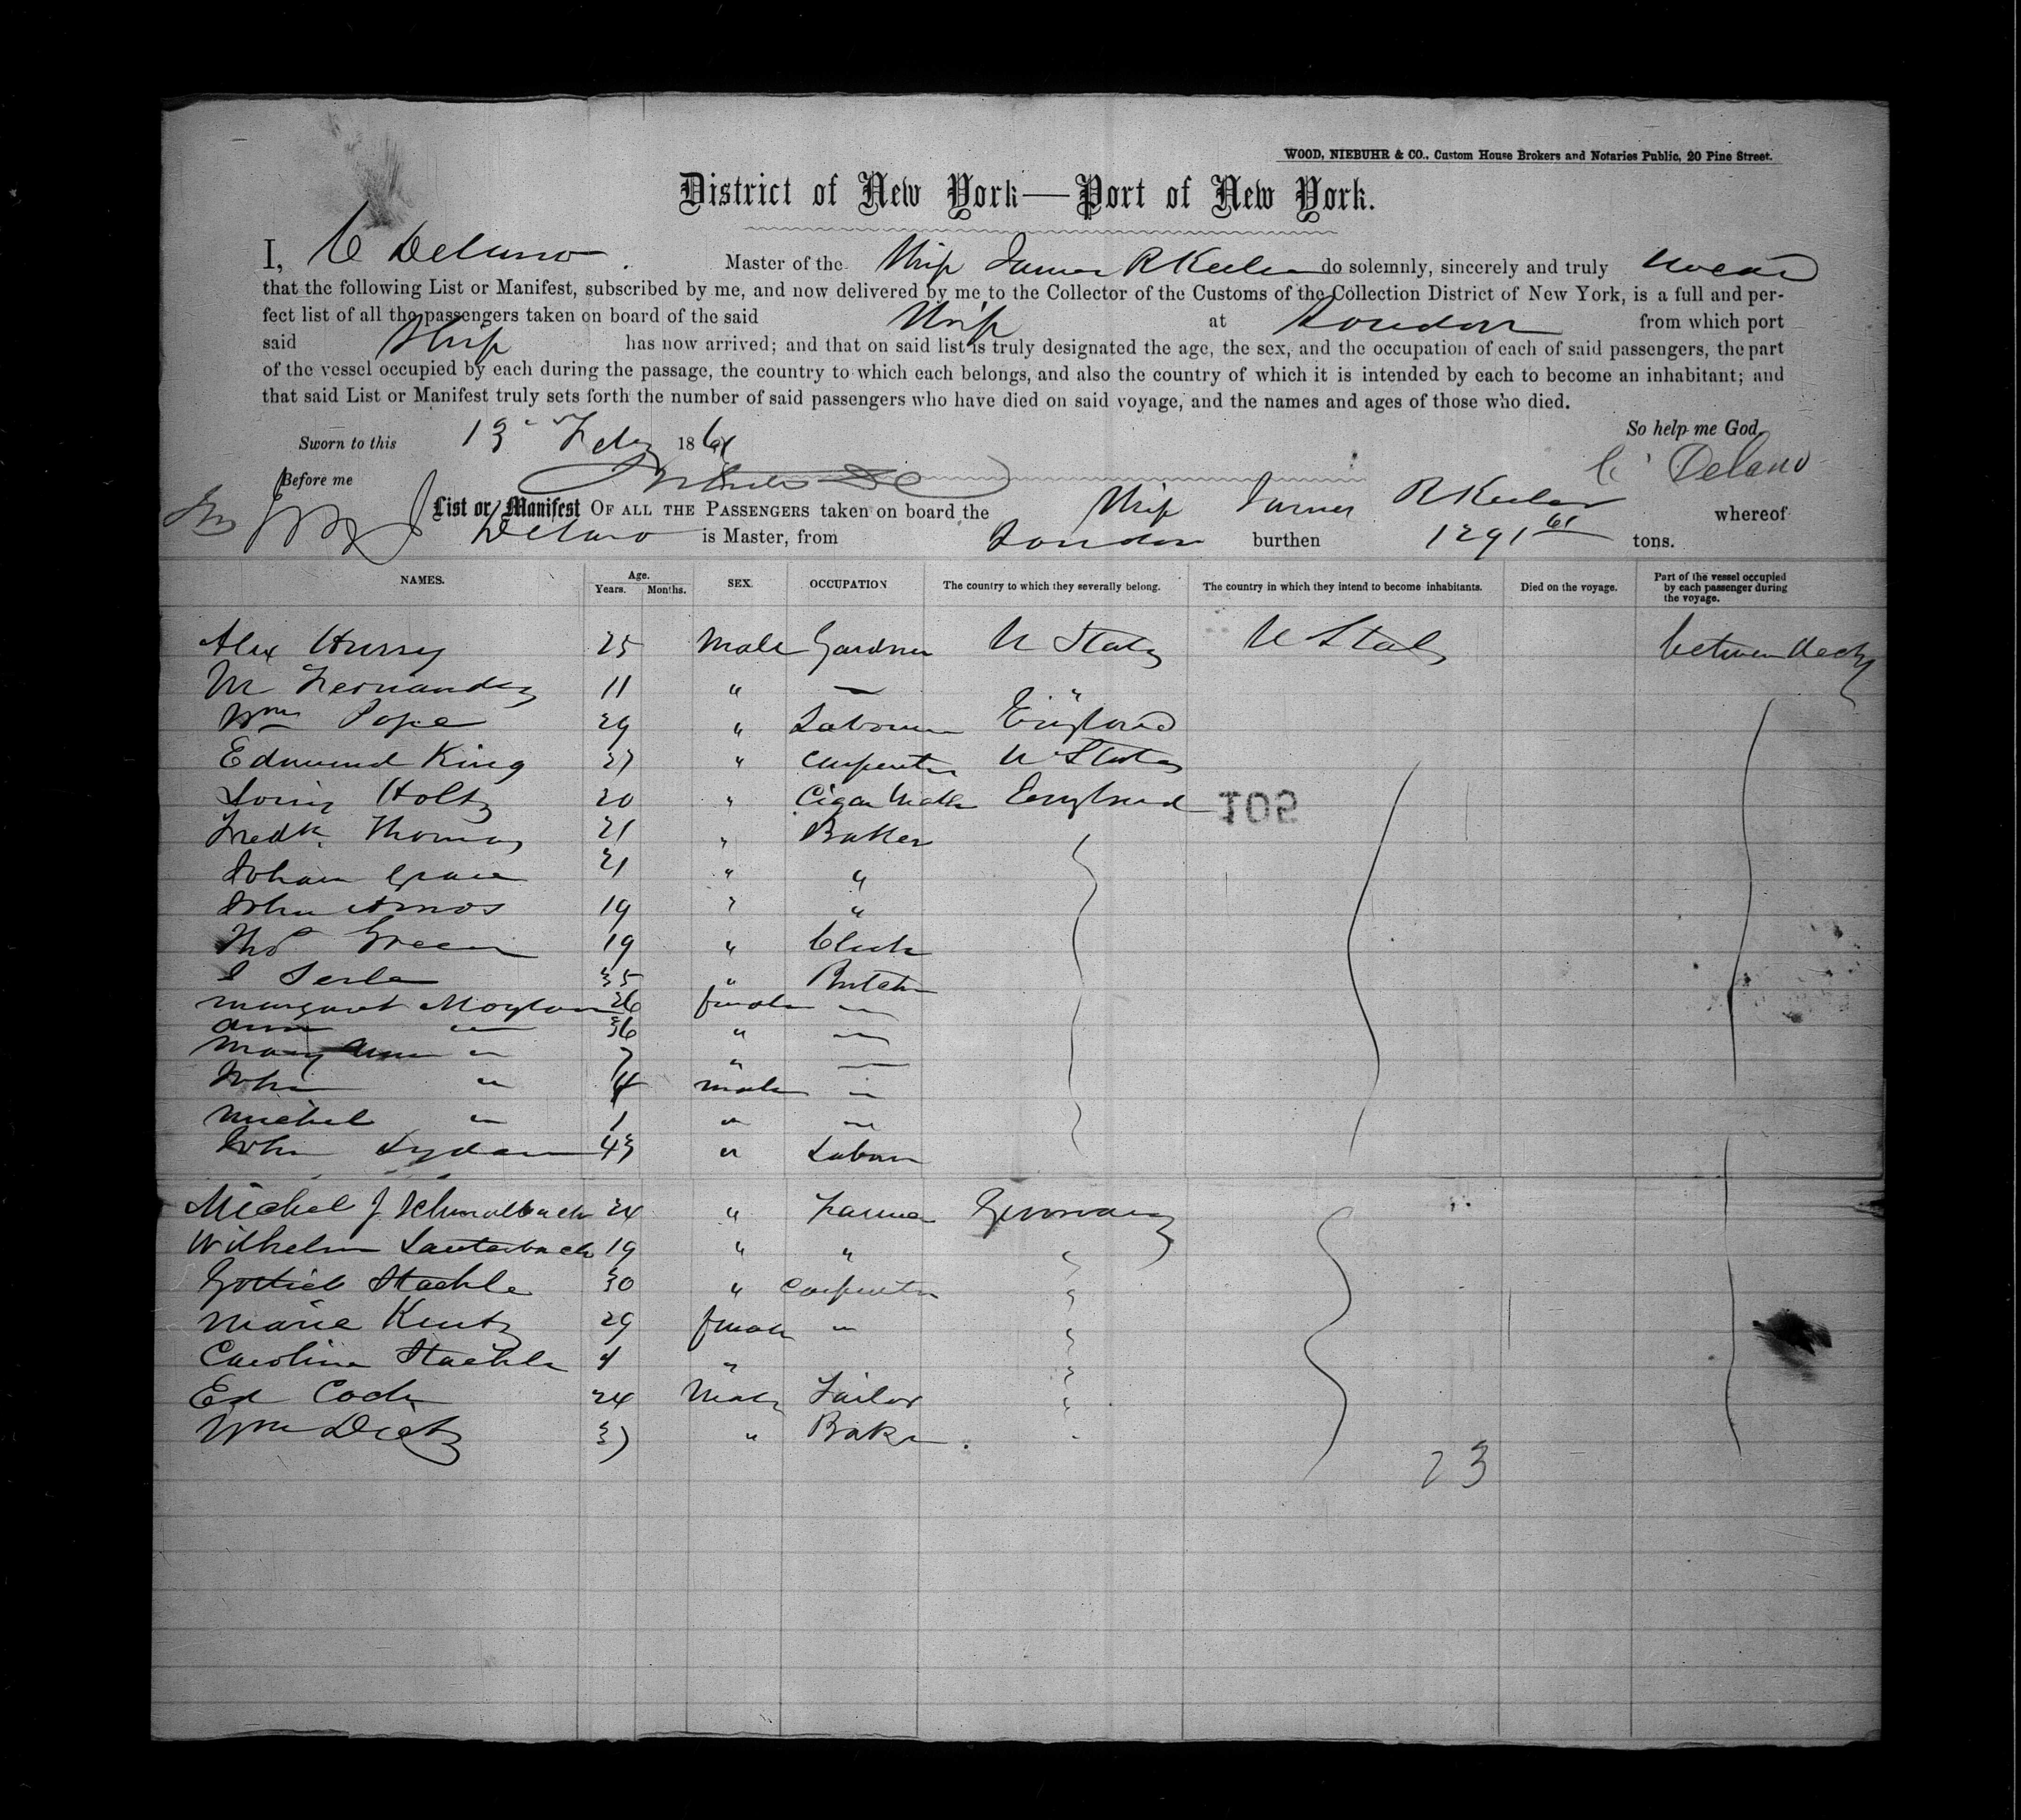 WOOD, NIEBUHR & CO., Custom House Brokers and Notaries Public, 20 Pine Street.
District of New York—Port of New York.
I, C Delano Master of the Ship James R Keeler do solemnly, sincerely and truly swear
that the following List or Manifest, subscribed by me, and now delivered by me to the Collector of the Customs of the Collection District of New York, is a full and per-
fect list of all the passengers taken on board of the said Ship at London from which port
said Ship has now arrived; and that on said list is truly designated the age, the sex, and the occupation of each of said passengers, the part
of the vessel occupied by each during the passage, the country to which each belongs, and also the country of which it is intended by each to become an inhabitant; and
that said List or Manifest truly sets forth the number of said passengers who have died on said voyage, and the names and ages of those who died.
So help me God.
Sworn to this 13 Feby 186
C Delano
Before me
List or Manifest OF ALL THE PASSENGERS taken on board the Ship James R Keeler whereof
Delano is Master, from London burthen 1291 61 tons.
NAMES. Age. Years. Months. SEX. OCCUPATION The country to which they severally belong. The country in which they intend to become inhabitants. Died on the voyage. Part of the vessel occupied by each passenger during the voyage.
Alex Hurry 25 Male Gardner U States U States between decks
M Fernandez 11 " — "
Wm Pope 29 " Labourer England
Edmund King 37 " Carpenter U States
Holtz 20 " Cigar Maker England
501
Fredk Thomas 21 " Baker
Johan 21 " "
John Amos 19 " "
Thos Green 19 " Clerk
35 " Butcher
Margaret Moylan 26 female "
Ann " 36 " "
Mary Ann " 7 " —
John " 4 male "
Michel " 1 " "
John Lydan 43 " Labour
Michel J Schmalbach 24 " Farmer Germany
Wilhelm Lauterbach 19 " " "
Gottieb Staehle 30 " Carpenter "
Marie Kuntz 29 female " "
Caroline Staehle 4 " "
Ed Coch 24 Male Tailor "
Wm Dietz 37 " Baker "
23